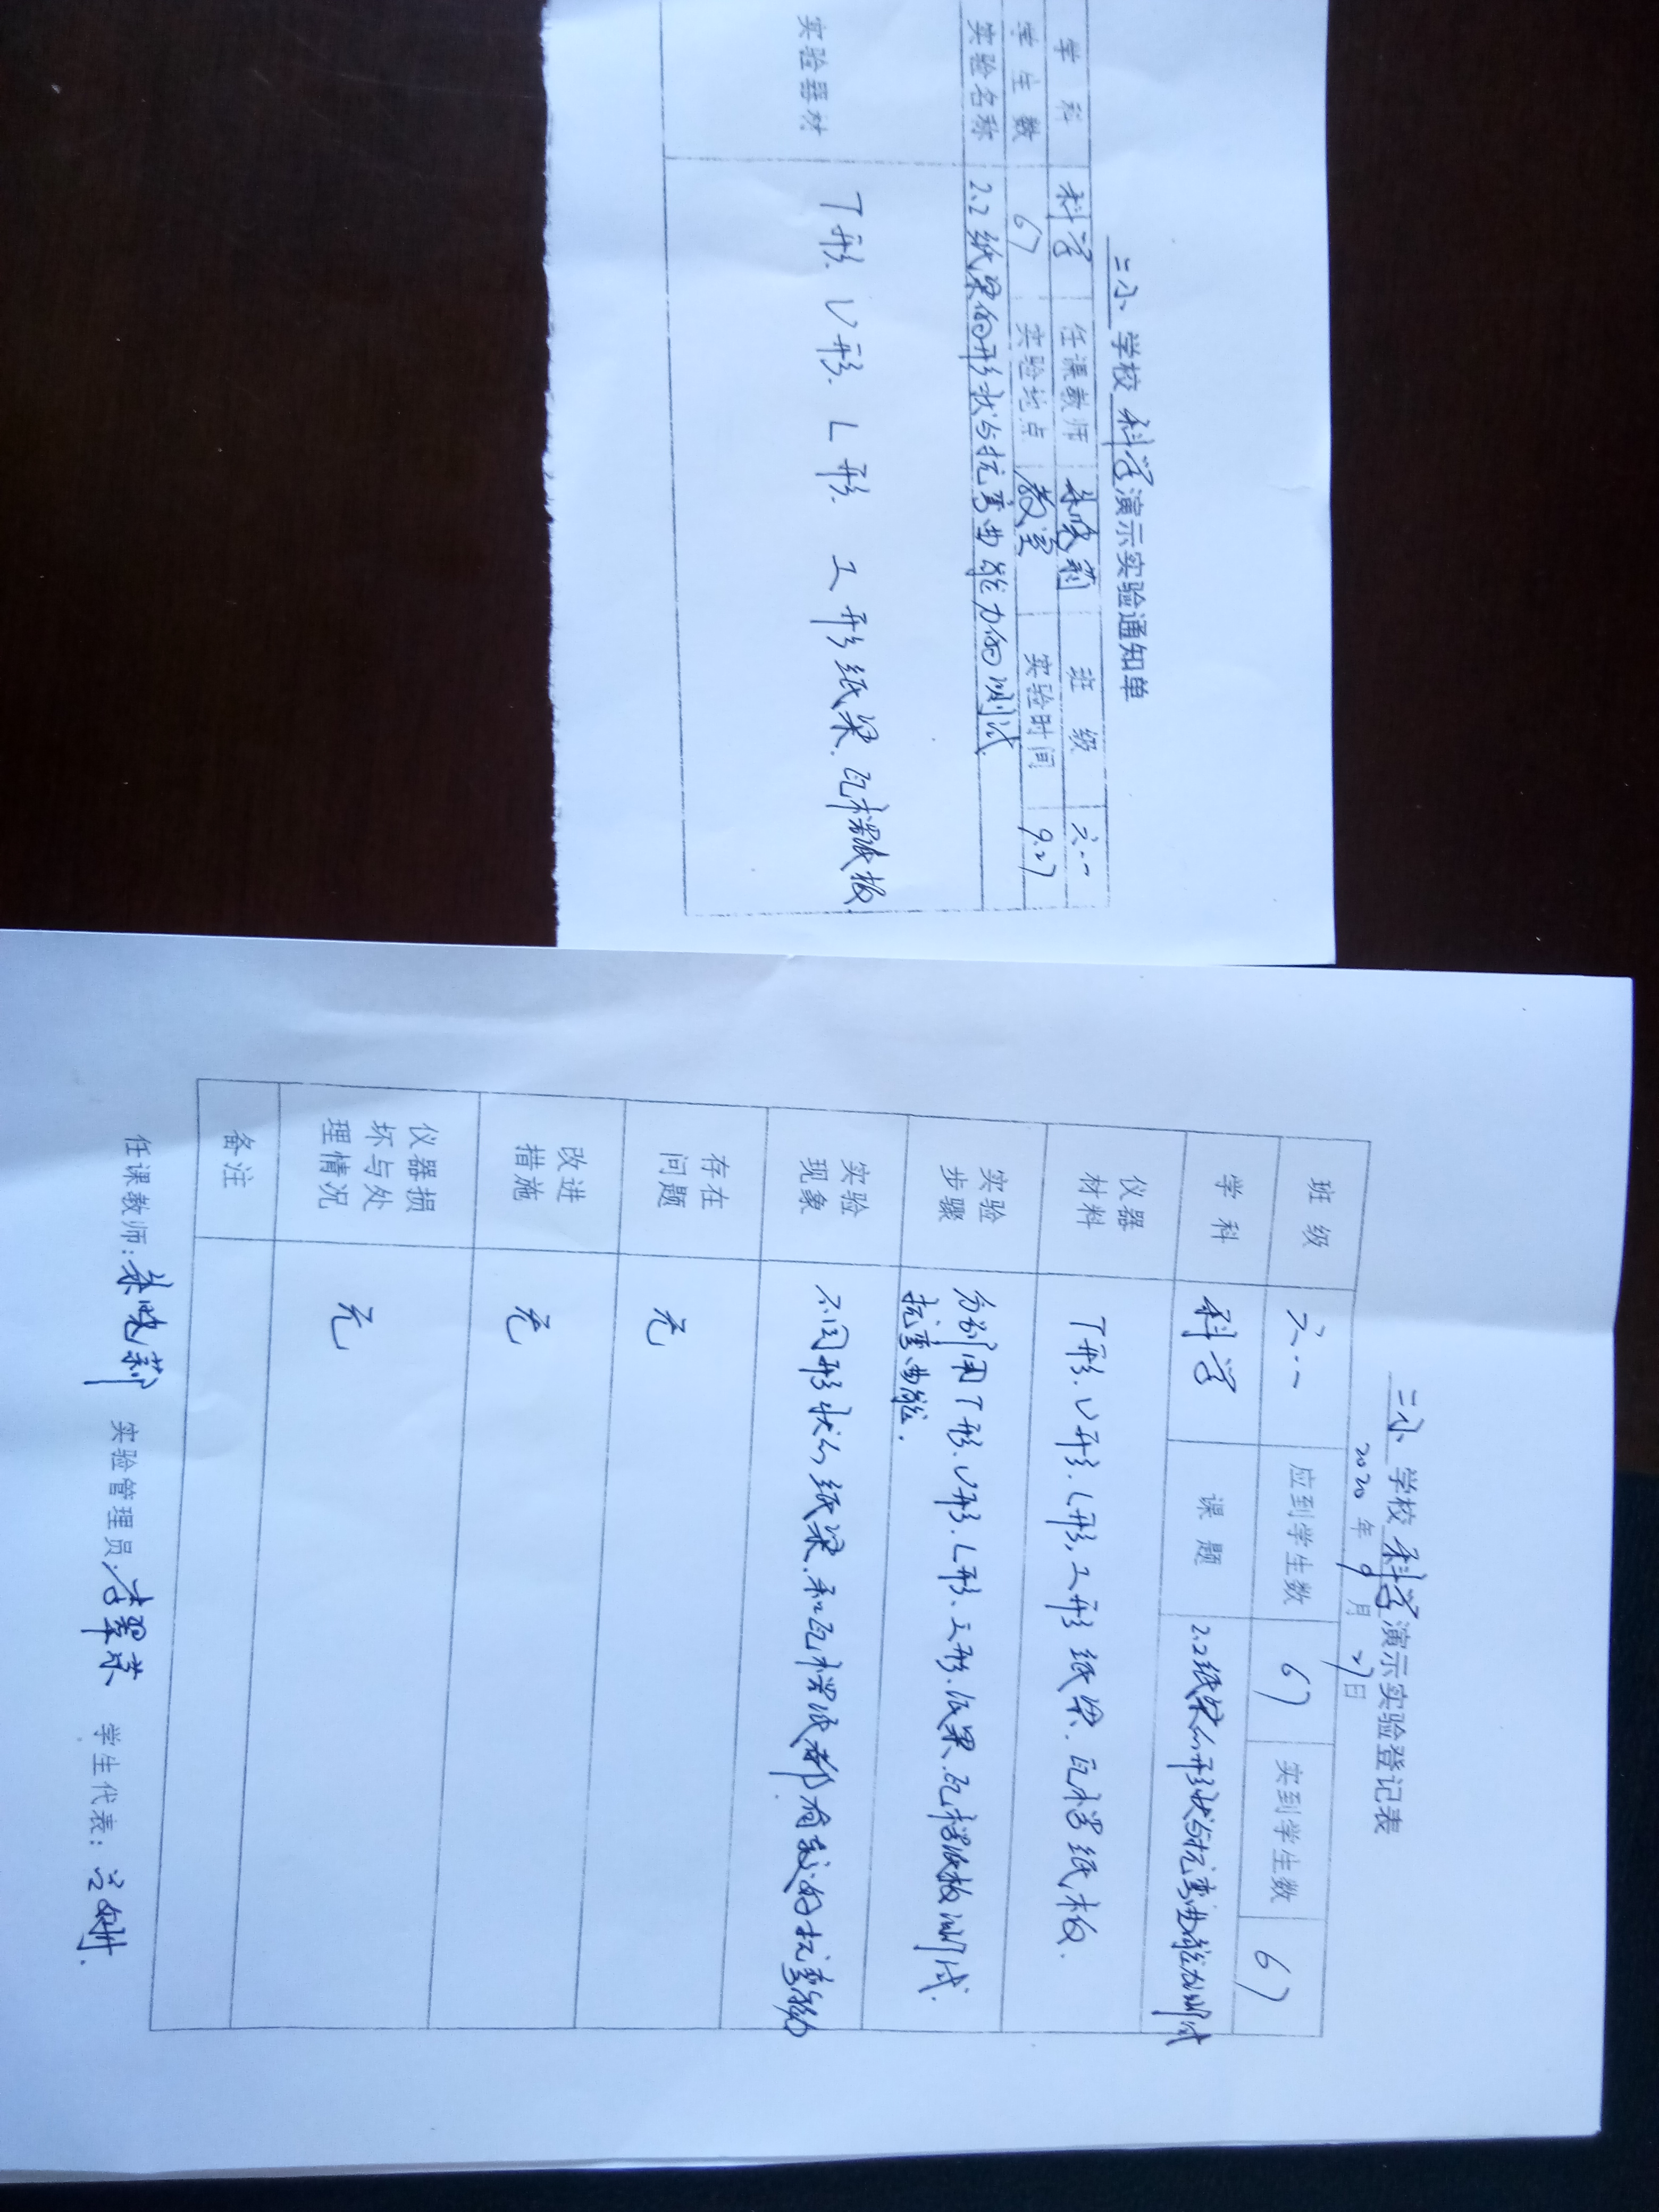 三小 学校 科学 演示实验通知单
学 科 科学 任课教师 班 级 六.一
学 生 数 67 实验地点 教室 实验时间 9.27
实验名称 2.2 纸梁的形状与抗弯曲能力的测试
实验器材 T形. U形. L形. 工形纸梁. 瓦楞纸板
三小 学校 科学 演示实验登记表
2020 年 9 月 27 日
班 级 六.一 应到学生数 67 实到学生数 67
学 科 科学 课 题 2.2 纸梁的形状与抗弯曲能力测试
仪器
材料
T形. U形. L形, 工形 纸梁. 瓦楞纸板.
实验
步骤
分别用T形. U形. L形. 工形. 纸梁. 瓦楞纸板测试.
抗弯曲能.
实验
现象
不同形状的纸梁. 和瓦楞纸都有较好的抗弯能力
存在
问题
无
改进
措施
无
仪器损
坏与处
理情况
无
备注
任课教师: 实验管理员: 学生代表: